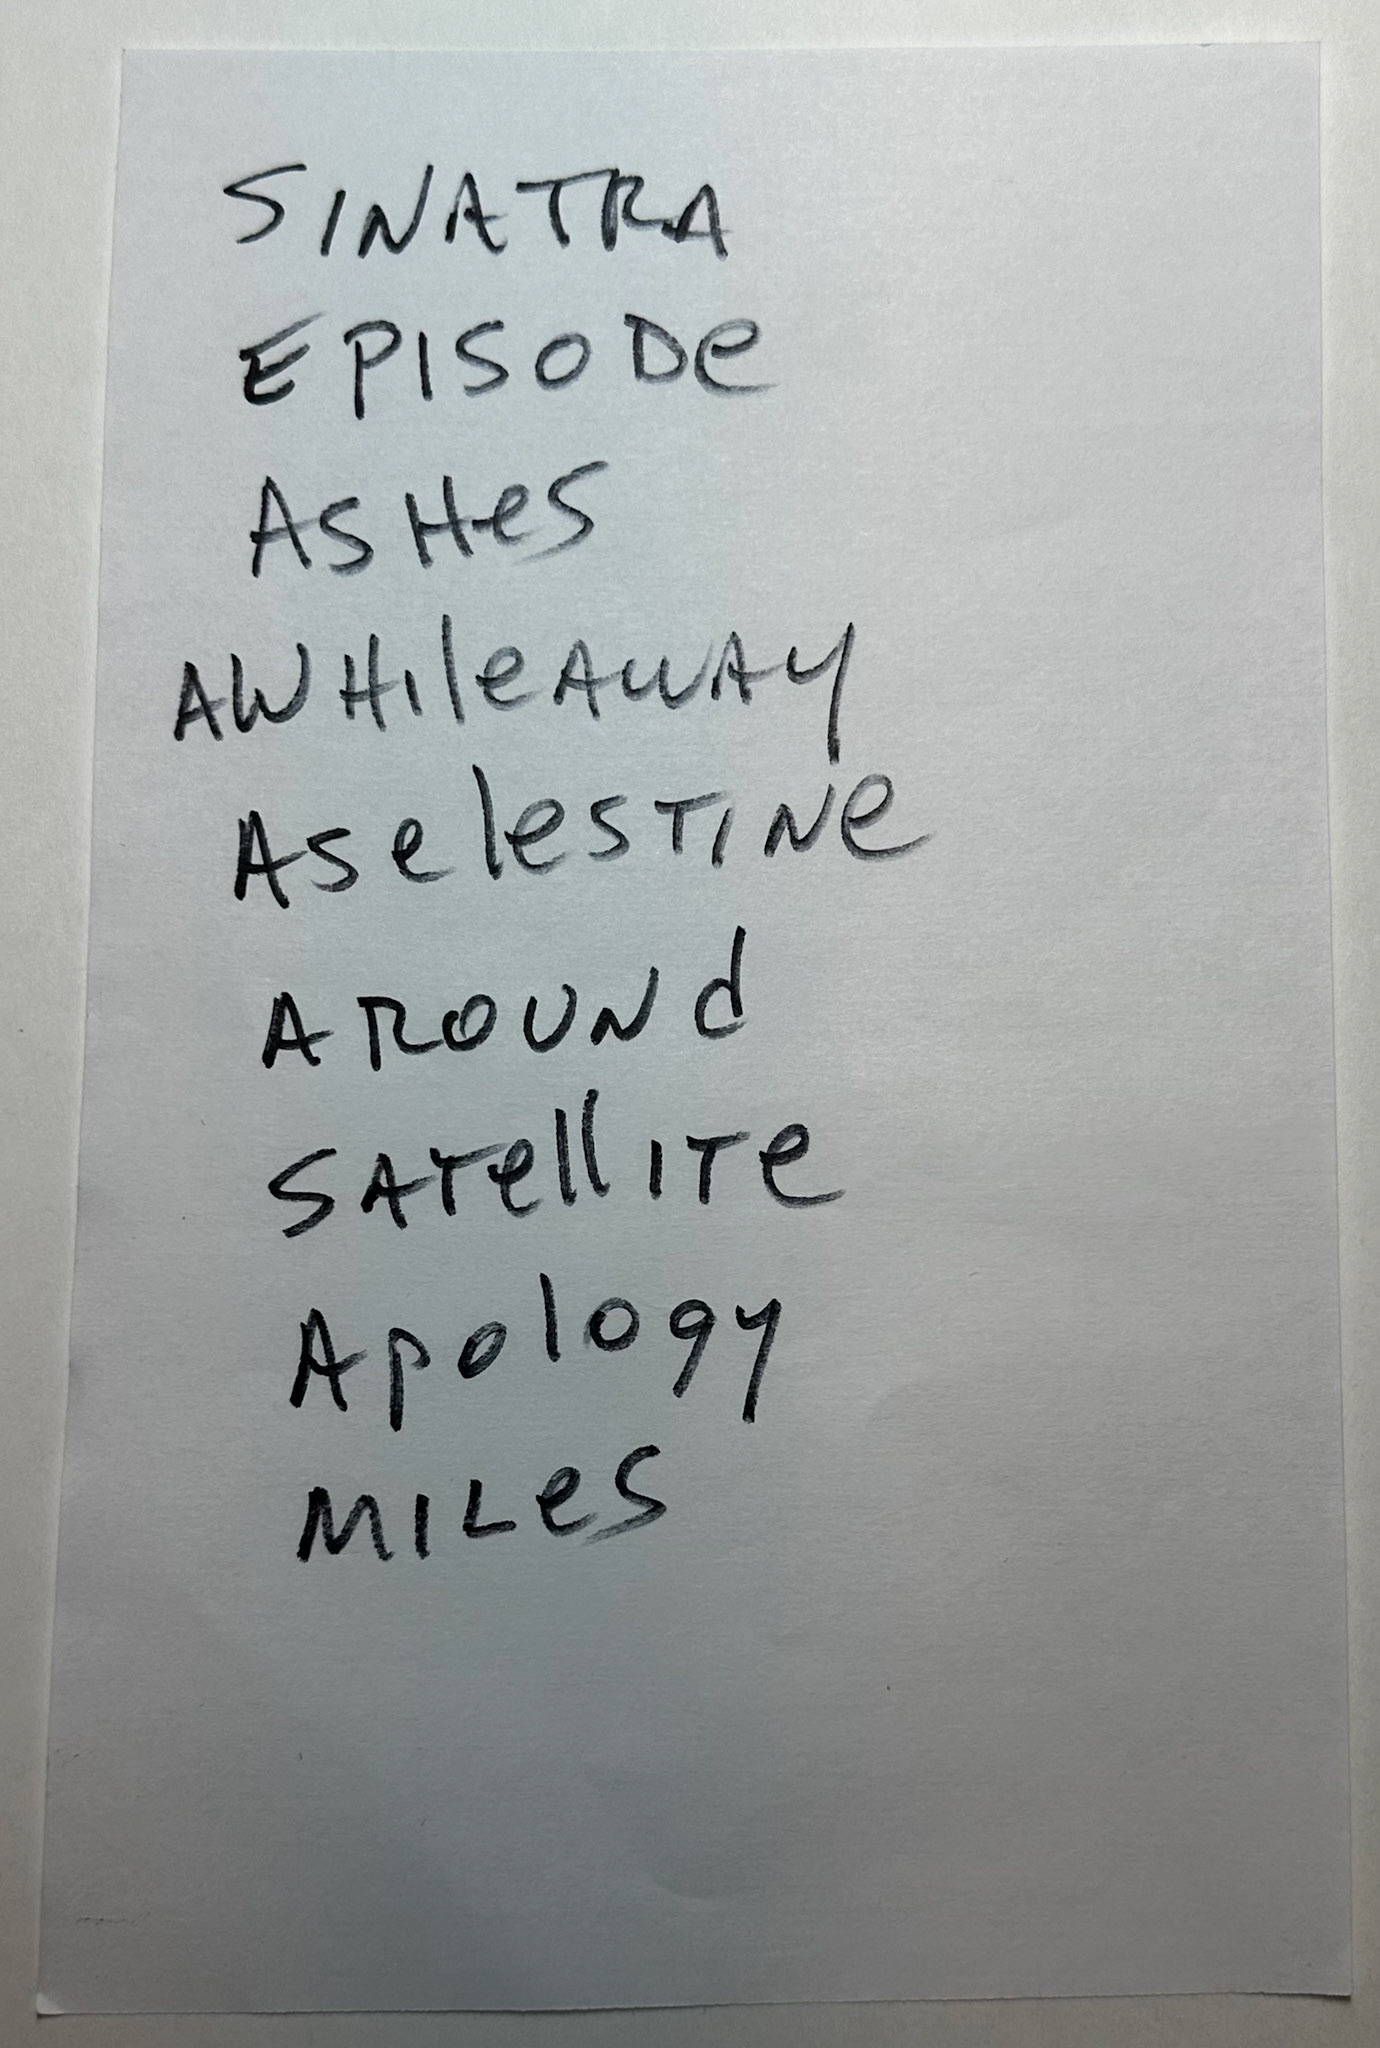 SINATRA
EPISODe
ASHeS
AWHileAWAy
ASelesTINe
AROUNd
SATellITe
Apology
MILeS